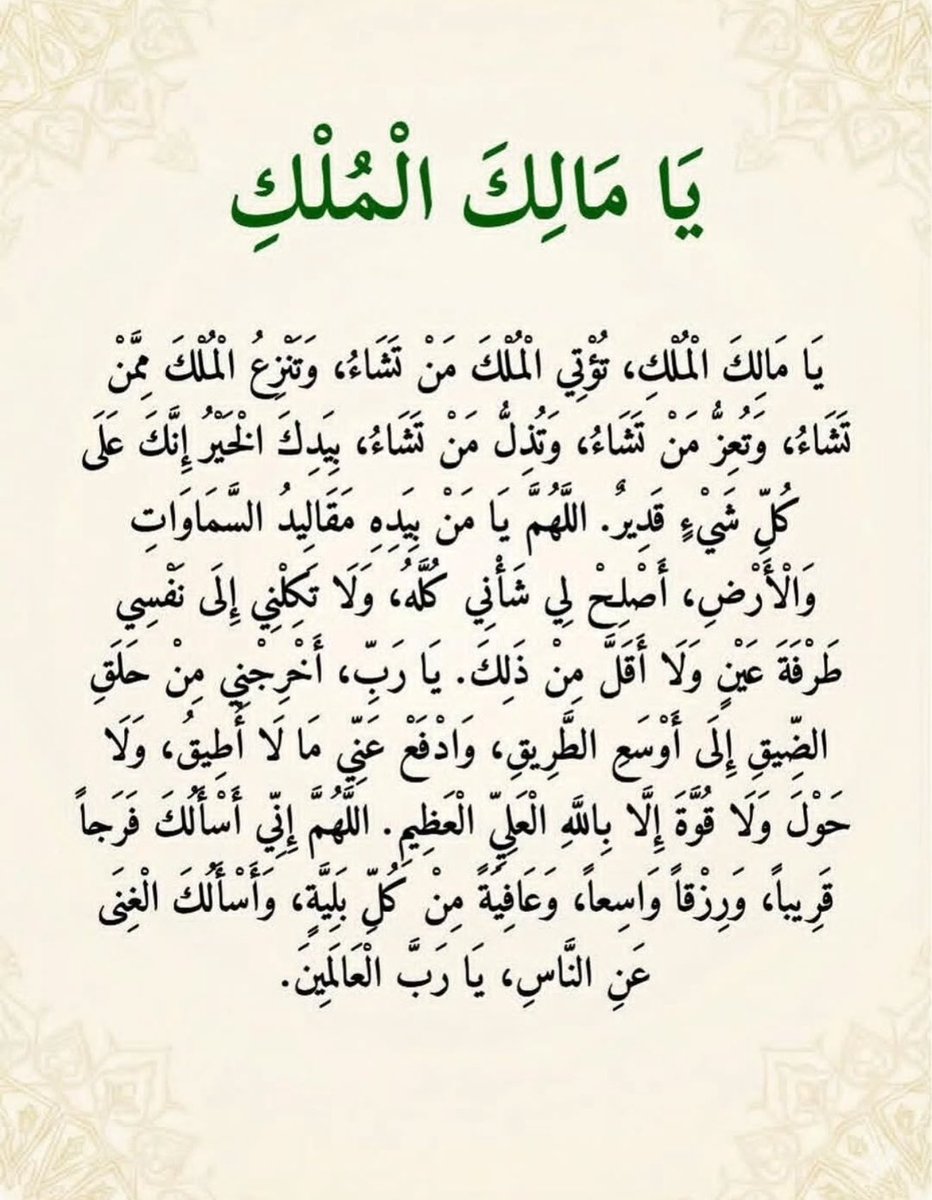 يَا مَالِكَ الْمُلْكِ
يَا مَالِكَ الْمُلْكِ، تُؤْتِي الْمُلْكَ مَنْ تَشَاءُ، وَتَنْزِعُ الْمُلْكَ مِمَّنْ
تَشَاءُ، وَتُعِزُّ مَنْ تَشَاءُ، وَتُذِلُّ مَنْ تَشَاءُ، بِيَدِكَ الْخَيْرُ إِنَّكَ عَلَى
كُلِّ شَيْءٍ قَدِيرٌ. اللَّهُمَّ يَا مَنْ بِيَدِهِ مَقَالِيدُ السَّمَاوَاتِ
وَالْأَرْضِ، أَصْلِحْ لِي شَأْنِي كُلَّهُ، وَلَا تَكِلْنِي إِلَى نَفْسِي
طَرْفَةَ عَيْنٍ وَلَا أَقَلَّ مِنْ ذَلِكَ. يَا رَبِّ، أَخْرِجْنِي مِنْ حَلَقِ
الضِّيقِ إِلَى أَوْسَعِ الطَّرِيقِ، وَادْفَعْ عَنِّي مَا لَا أُطِيقُ، وَلَا
حَوْلَ وَلَا قُوَّةَ إِلَّا بِاللَّهِ الْعَلِيِّ الْعَظِيمِ. اللَّهُمَّ إِنِّي أَسْأَلُكَ فَرَجاً
قَرِيباً، وَرِزْقاً وَاسِعاً، وَعَافِيَةً مِنْ كُلِّ بَلِيَّةٍ، وَأَسْأَلُكَ الْغِنَى
عَنِ النَّاسِ، يَا رَبَّ الْعَالَمِينَ.